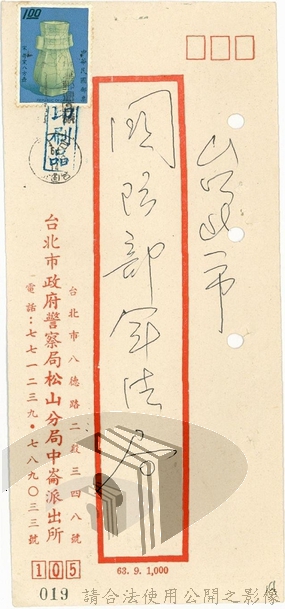 台北市
國防部軍法局
1.00
中華民國郵票
印刷品
台北市八德路二段三四八號
台北市政府警察局松山分局中崙派出所
電話：七七一二三九•七八九〇三三號
105
63. 9. 1,000
019
請合法使用公開之影像